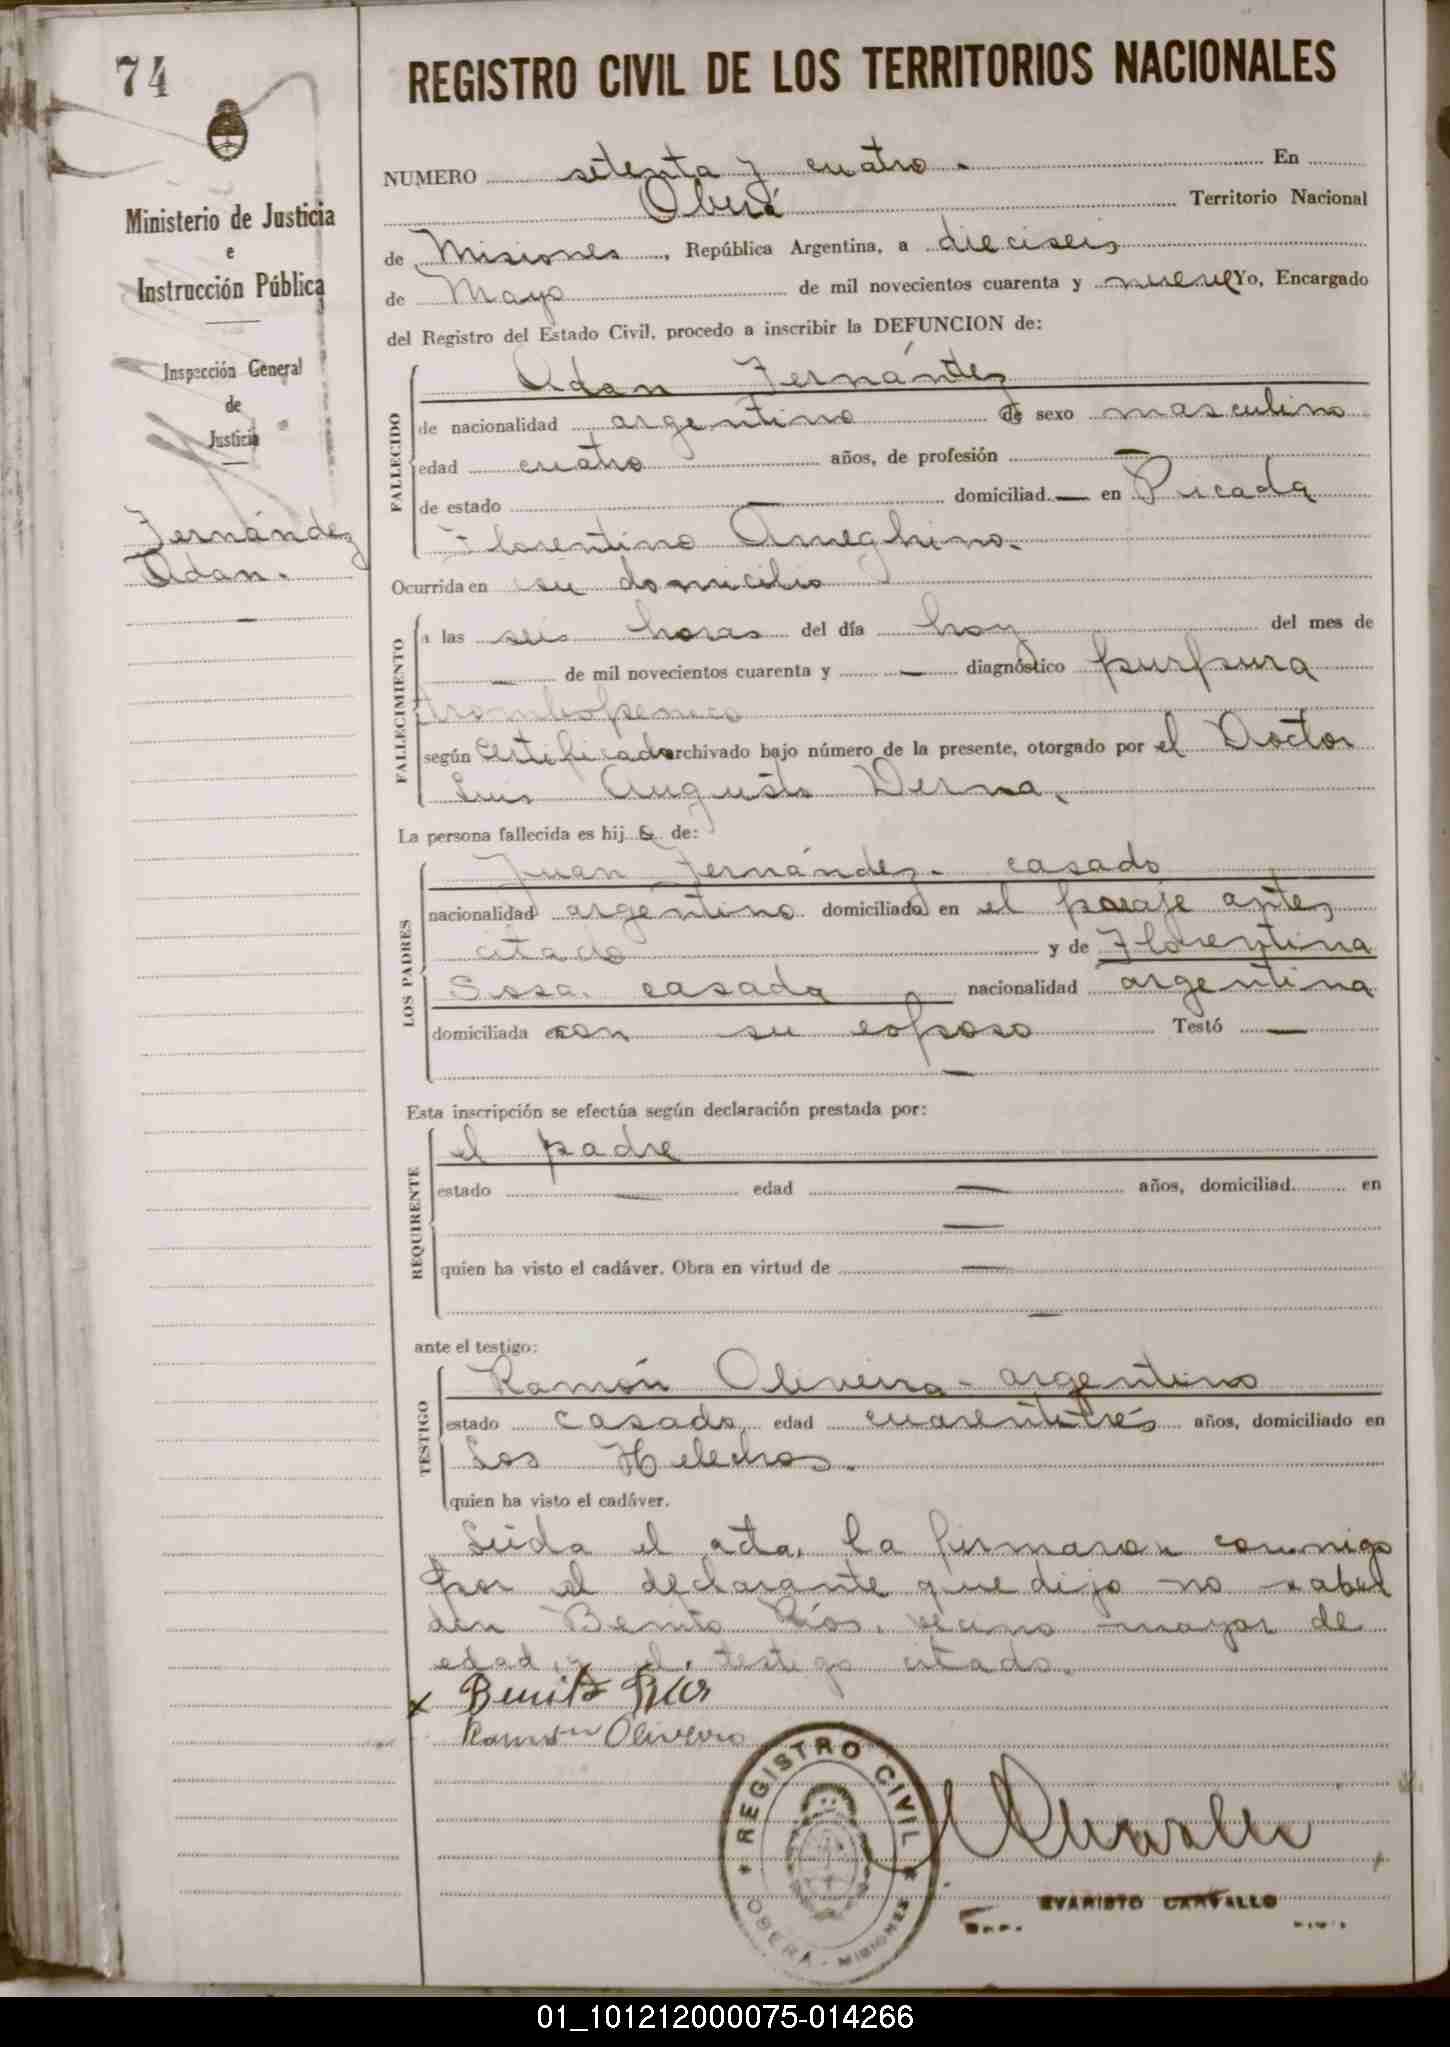 74
REGISTRO CIVIL DE LOS TERRITORIOS NACIONALES
Ministerio de Justicia
e
Instrucción Pública
Inspección General
de
Justicia
Fernández
Adan.
NUMERO setenta y cuatro. En
Oberá Territorio Nacional
de Misiones, República Argentina, a dieciseis
de Mayo de mil novecientos cuarenta y nueve Yo, Encargado
del Registro del Estado Civil, procedo a inscribir la DEFUNCION de:
FALLECIDO
Adan Fernández
de nacionalidad argentino de sexo masculino
edad cuatro años, de profesión —
de estado — domiciliad — en Picada
Florentino Ameghino.
Ocurrida en su domicilio
FALLECIMIENTO
a las seis horas del día hoy del mes de
— de mil novecientos cuarenta y — diagnóstico purpura
trombopenico
según certificado archivado bajo número de la presente, otorgado por el Doctor
Luis Augusto Derna.
La persona fallecida es hij o de:
LOS PADRES
Juan Fernández. casado
nacionalidad argentino domiciliado en el paraje antes
citado y de Florentina
Sosa. casada nacionalidad argentina
domiciliada con su esposo Testó —
—
Esta inscripción se efectúa según declaración prestada por:
REQUIRENTE
el padre
estado — edad — años, domiciliad en
—
quien ha visto el cadáver. Obra en virtud de —
—
ante el testigo:
TESTIGO
Ramón Oliveira - argentino
estado casado edad cuarentitrés años, domiciliado en
Los Helechos.
quien ha visto el cadáver.
Leida el acta, la firmaron conmigo
por el declarante que dijo no saber
don Benito Ríos, vecino mayor de
edad, y el testigo citado.
x Benito Ríos
Ramon Oliveira
REGISTRO CIVIL
OBERÁ - MISIONES
EVARISTO CARVALLO
01_101212000075-014266